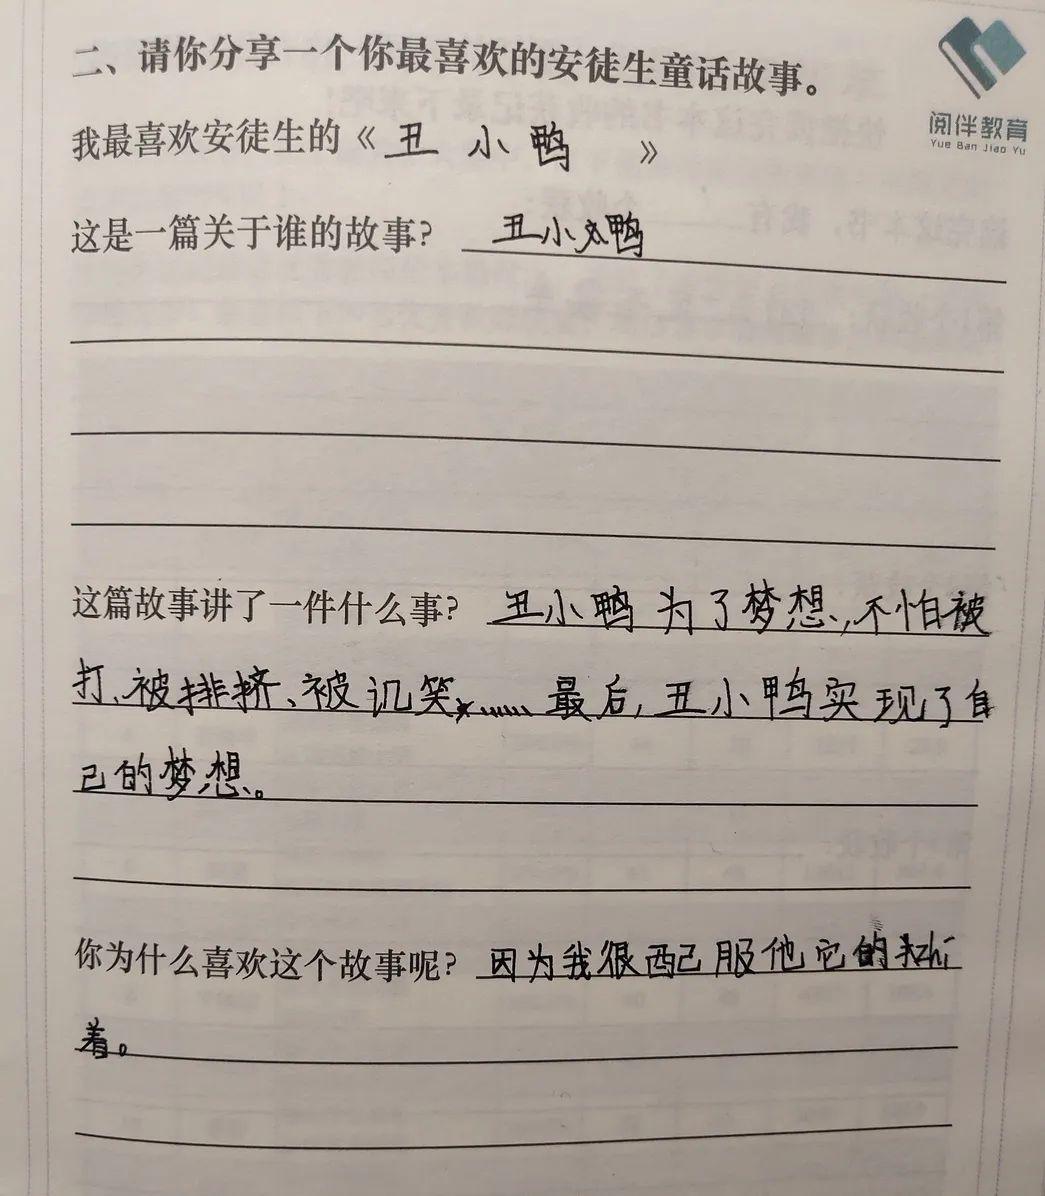 二、请你分享一个你最喜欢的安徒生童话故事。
阅伴教育
Yue Ban Jiao Yu
我最喜欢安徒生的《丑小鸭》
这是一篇关于谁的故事？ 丑小鸭
这篇故事讲了一件什么事？ 丑小鸭为了梦想，不怕被
打、被排挤、被讥笑……最后，丑小鸭实现了自
己的梦想。
你为什么喜欢这个故事呢？ 因为我很配服他它的执zhí
着。